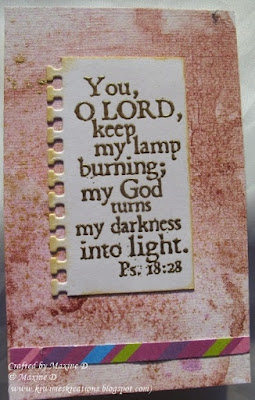 You,
O LORD,
keep
my lamp
burning;
my God
turns
my darkness
into light.
Ps. 18:28
Crafted by Maxine D
© Maxine D
(www.kiwimeskreations.blogspot.com)